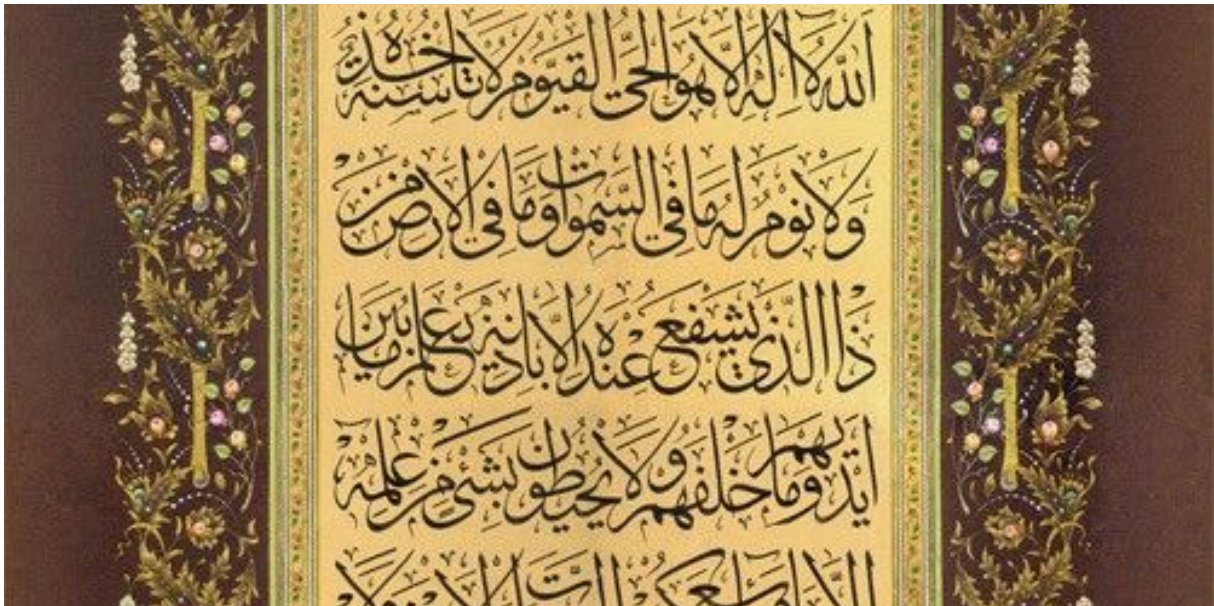 اللّٰهُ لَا اِلٰهَ اِلَّا هُوَ الْحَىُّ الْقَيُّومُ لَا تَأْخُذُهُ سِنَةٌ
وَلَا نَوْمٌ لَهُ مَا فِي السَّمٰوَاتِ وَمَا فِي الْاَرْضِ مَنْ
ذَا الَّذِي يَشْفَعُ عِنْدَهُ اِلَّا بِاِذْنِهِ يَعْلَمُ مَا بَيْنَ
اَيْدِيهِمْ وَمَا خَلْفَهُمْ وَلَا يُحِيطُونَ بِشَىْءٍ مِنْ عِلْمِهِ